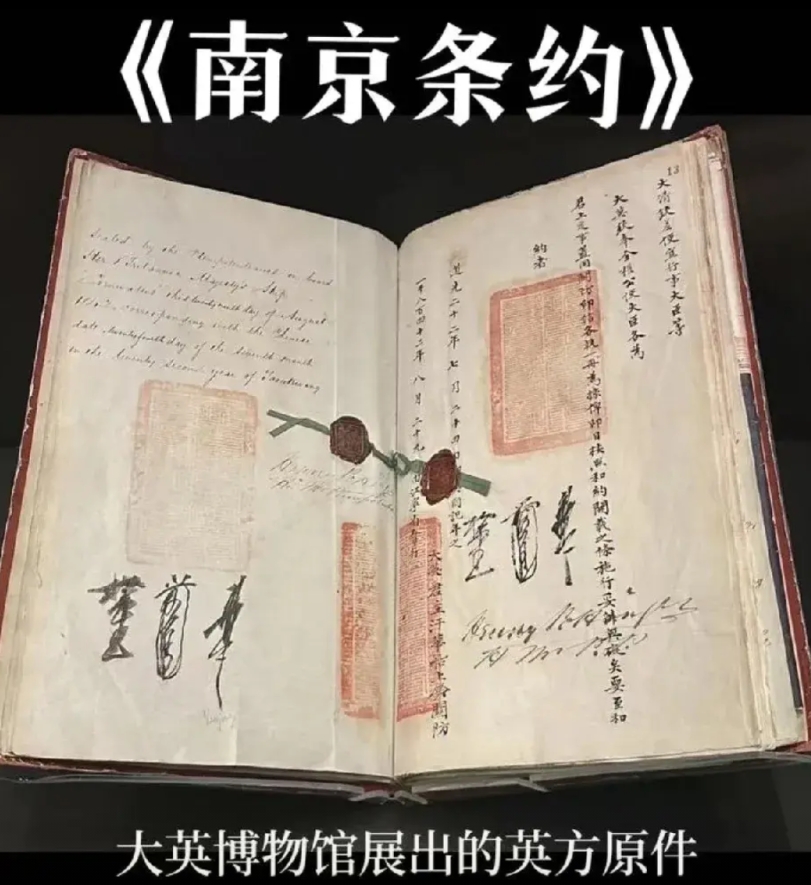 《南京条约》
by the Plenipotentiaries on board
Her Britannic Majesty's Ship
Cornwallis this twenty ninth day of August
1842 corresponding with the Chinese
date twenty fourth day of the seventh month
in the twenty second year of Taoukwang
13
大清欽差便宜行事大臣等
大英欽奉全權公使大臣各為
君上定事蓋用關防印信各執一冊為據俾即日按照和約開載之條施行妥辦無礙矣要至和
約者
道光二十二年七月二十四日英國記年之
一千八百四十二年八月二十九日由江寧省
大英君主汗華船上鈐關防
Henry Pottinger
大英博物馆展出的英方原件